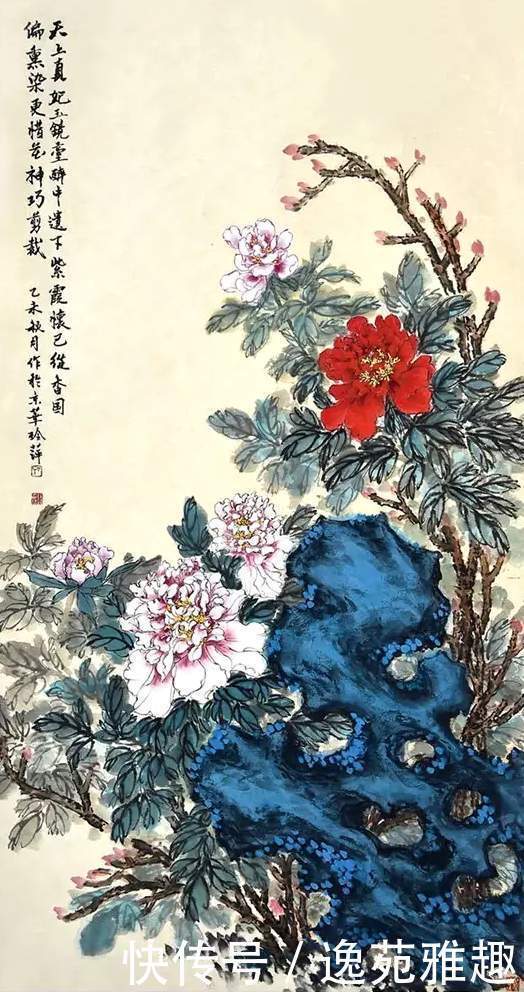 天上真妃玉镜臺醉中遺下紫霞懷已從香国
偏熏染更惜花神巧剪裁
乙未秋月作於京華玲萍
快传号 / 逸苑雅趣